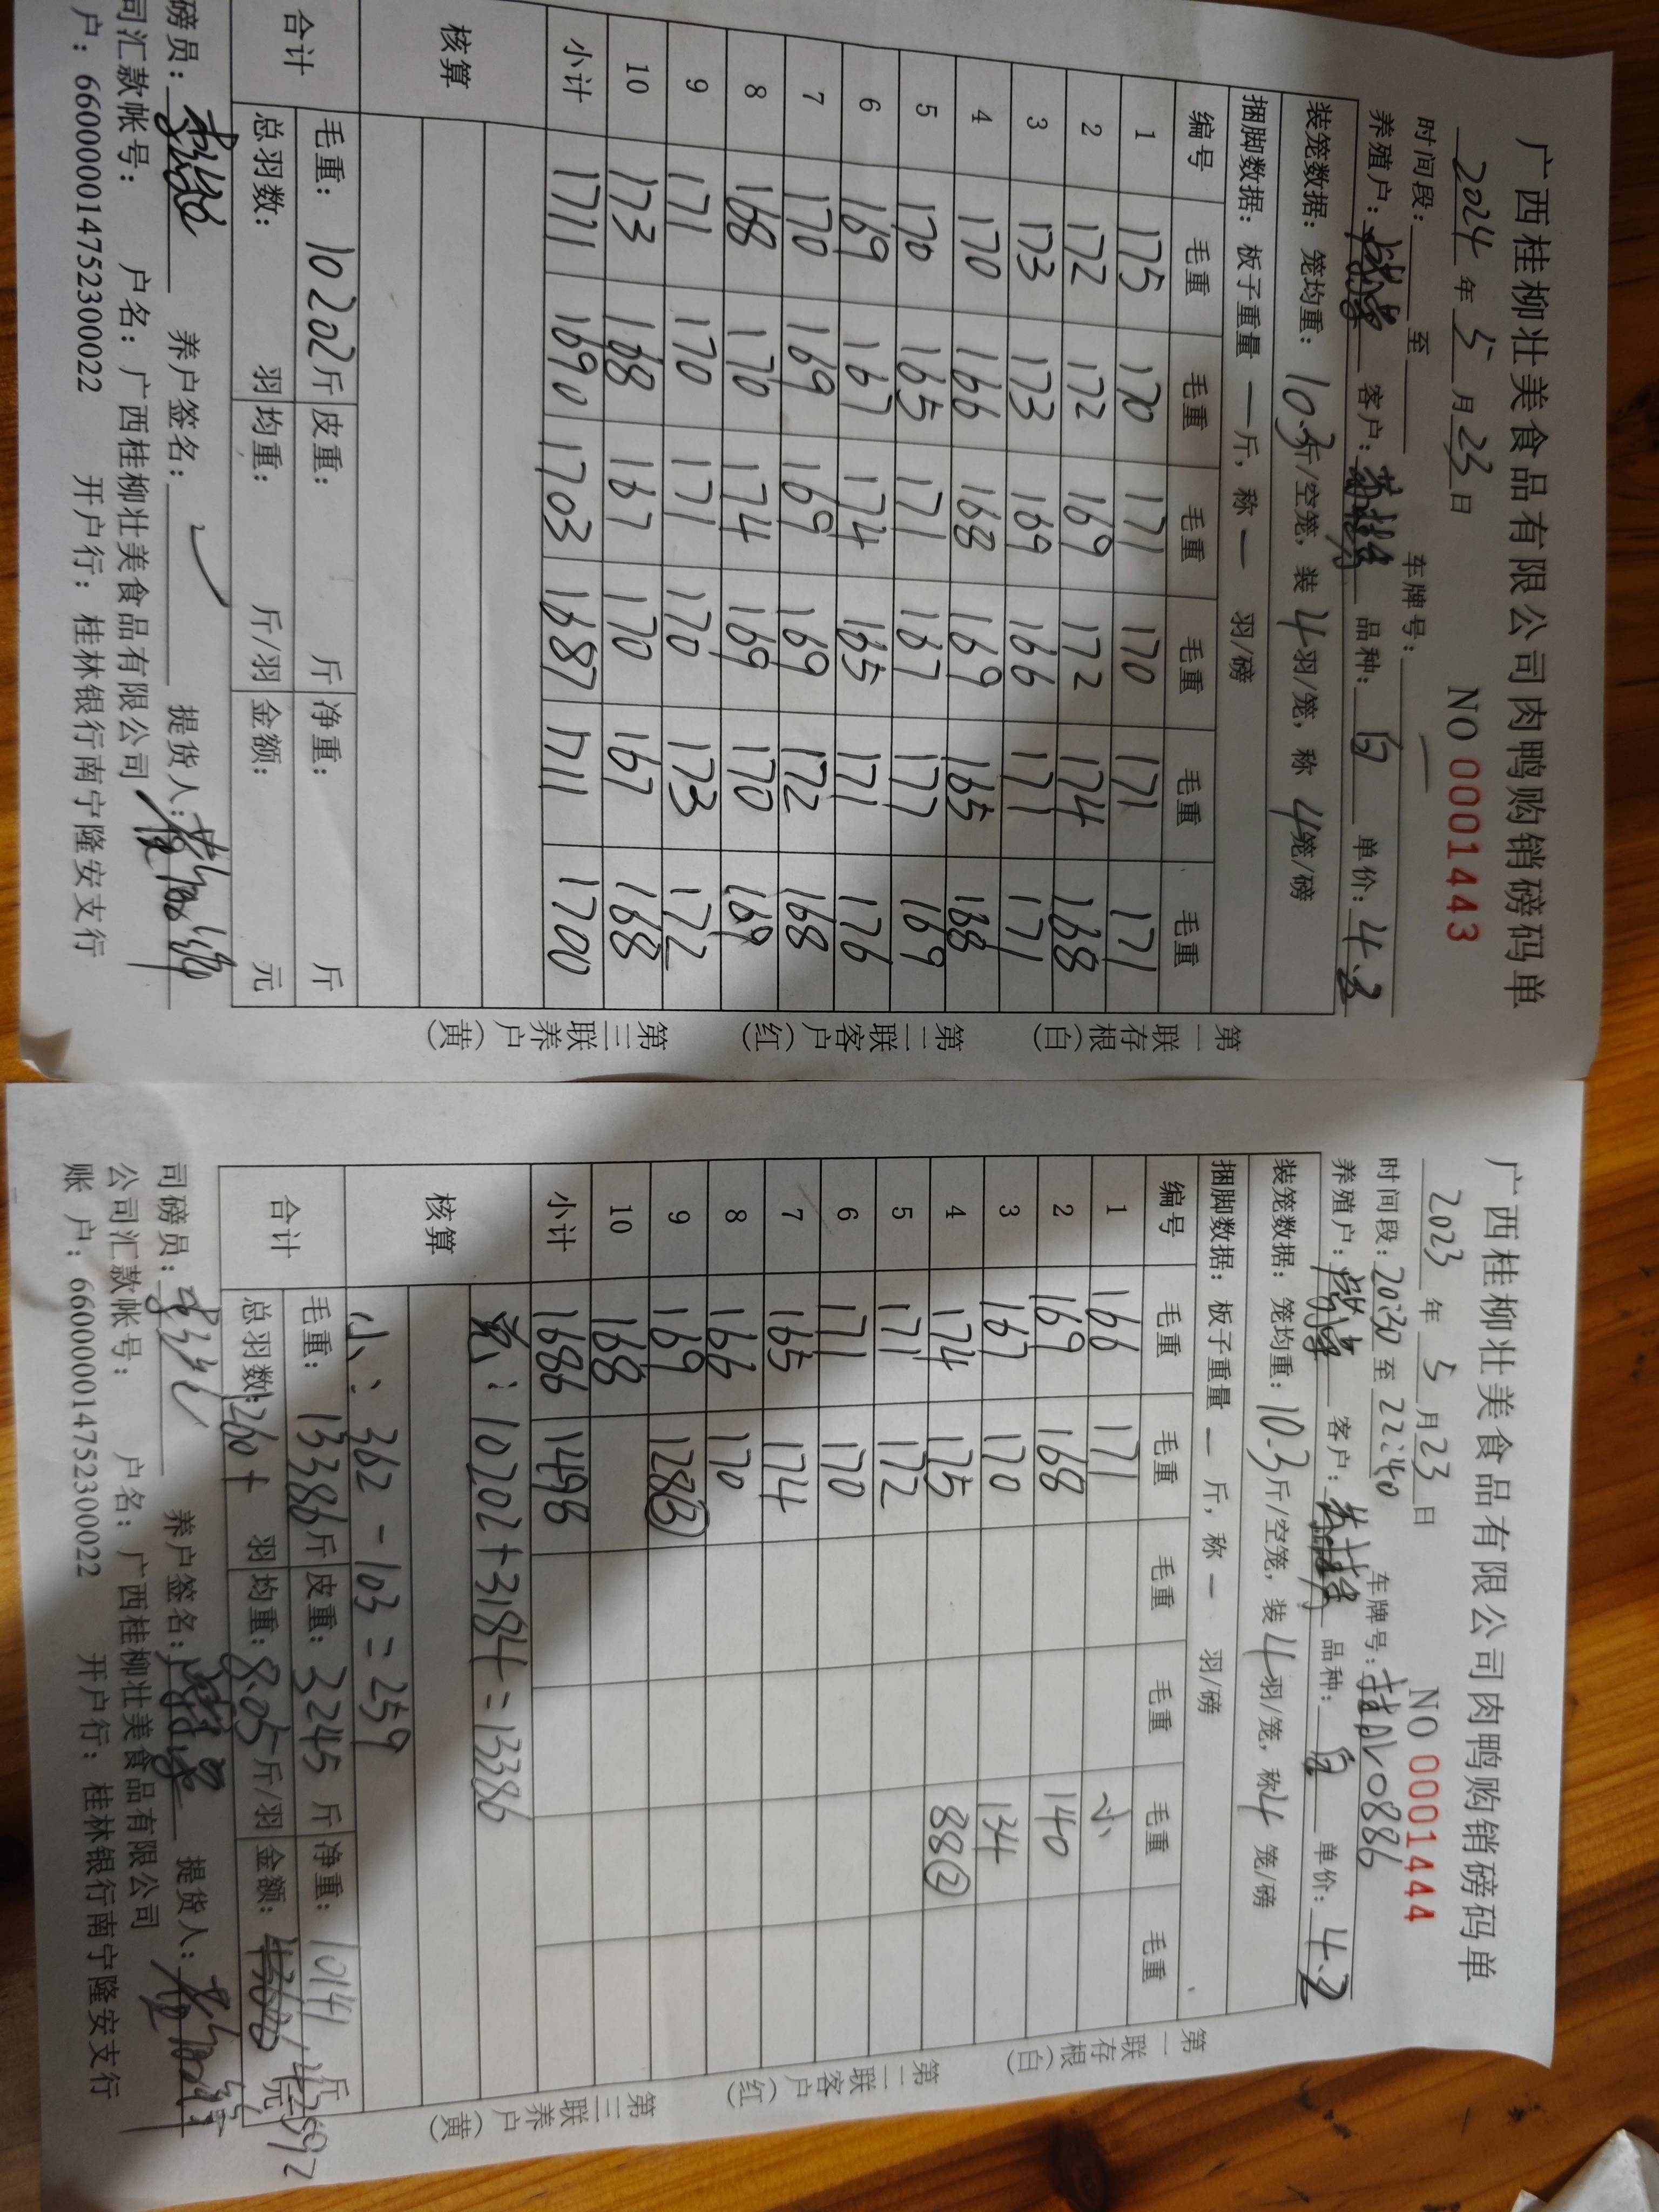 广西桂柳壮美食品有限公司肉鸭购销磅码单
NO 0001443
2024年5月23日
时间段: 至 车牌号: 一
养殖户: 客户: 品种: 白 单价: 4.2
装笼数据: 笼均重: 10.3斤/空笼, 装 4羽/笼, 称 4笼/磅
捆脚数据: 板子重量 一斤, 称 一 羽/磅
编号 毛重 毛重 毛重 毛重 毛重 毛重
1 175 170 171 170 171 171
2 172 172 169 172 174 168
3 173 173 169 166 171 171
4 170 166 168 169 165 168
5 170 165 171 167 177 169
6 169 167 174 165 171 176
7 170 169 169 169 172 168
8 168 170 174 169 170 169
9 171 170 171 170 173 172
10 173 168 167 170 167 168
小计 1711 1690 1703 1687 1711 1700
核算
合计
毛重: 10202斤 皮重: 斤 净重: 斤
总羽数: 羽 均重: 斤/羽 金额: 元
磅员: 养户签名: 提货人:
司汇款帐号: 户名: 广西桂柳壮美食品有限公司
户: 660000014752300022 开户行: 桂林银行南宁隆安支行
第一联存根(白) 第二联客户(红) 第三联养户(黄)
广西桂柳壮美食品有限公司肉鸭购销磅码单
NO 0001444
2023年5月23日
时间段: 20:30至22:40 车牌号: 桂A·L0886
养殖户: 客户: 品种: 白 单价: 4.2
装笼数据: 笼均重: 10.3斤/空笼, 装4羽/笼, 称4 笼/磅
捆脚数据: 板子重量 一 斤, 称 一 羽/磅
编号 毛重 毛重 毛重 毛重 毛重 毛重
1 166 171 小
2 169 168 140
3 167 170 134
4 174 175 88②
5 171 172
6 171 170
7 165 174
8 166 170
9 169 128③
10 168
小计 1686 1498
核算
: 10202+3184=13386
小: 362-103=259
合计
毛重: 13386斤 皮重: 3245 斤 净重: 10141斤
总羽数: 1260+ 羽 均重: 8.05斤/羽 金额: 42592元
司磅员: 养户签名: 提货人:
公司汇款帐号: 户名: 广西桂柳壮美食品有限公司
账 户: 660000014752300022 开户行: 桂林银行南宁隆安支行
第一联存根(白) 第二联客户(红) 第三联养户(黄)